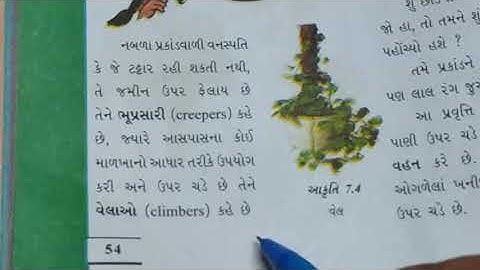 નબળા પ્રકાંડવાળી વનસ્પતિ
કે જે ટટ્ટાર રહી શકતી નથી,
તે જમીન ઉપર ફેલાય છે
તેને ભૂપ્રસારી (creepers) કહે
છે, જ્યારે આસપાસના કોઈ
માળખાનો આધાર તરીકે ઉપયોગ
કરી અને ઉપર ચડે છે તેને
વેલાઓ (climbers) કહે છે
54
આકૃતિ 7.4
વેલ
જો હા, તો તમને શું
પહોંચ્યો હશે ?
તમે પ્રકાંડને
પણ લાલ રંગ જુ
આ પ્રવૃત્તિ
પાણી ઉપર ચડે
વહન કરે છે.
ઓગળેલાં ખની
ઉપર ચડે છે.